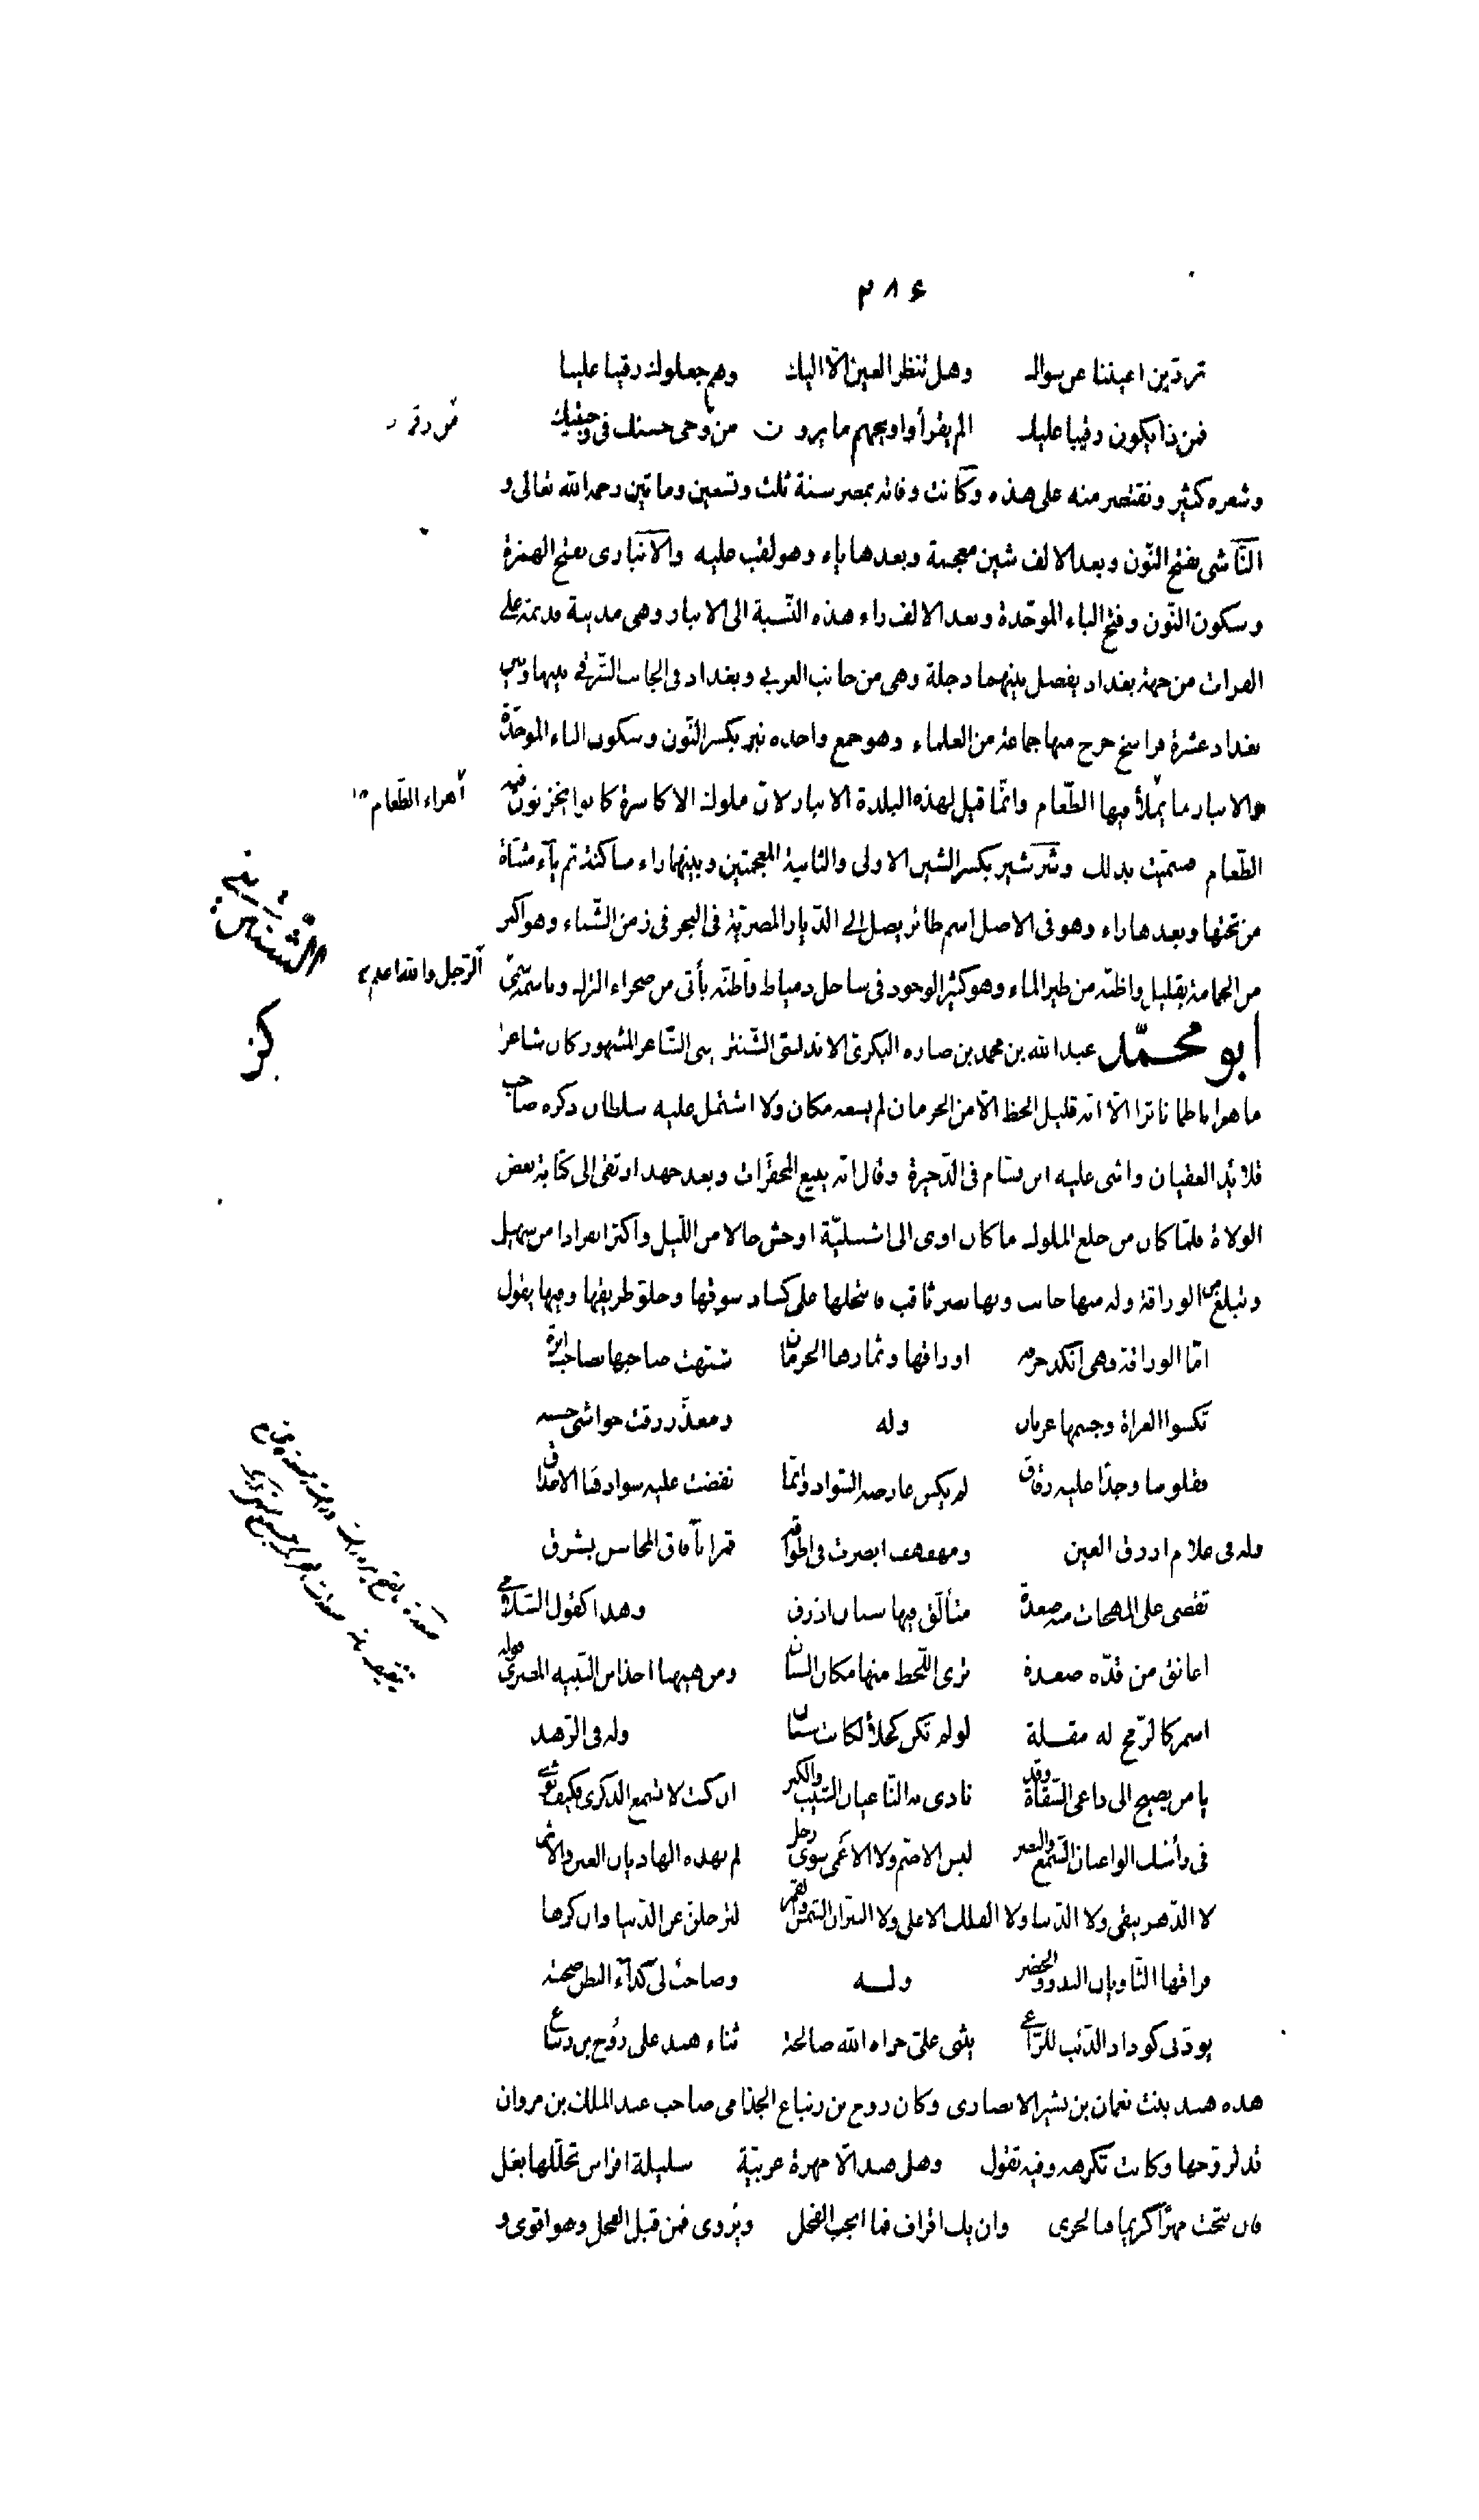 ٢٨٤
تردّين اعيننا عن سواك وهل تنظر العين الّا اليك وهم جعلوك رقيبا علينا
فمن ذا يكون رقيبا عليك الم يقرأوا ويحهم ما يرون من وحى حسنك فى وجنتيك
وشعره كثير ونقتصر منه على هذه وكانت وفاته بمصر سنة ثلث وتسعين وماتين رحمه الله تعالى و
النّاشى بفتح النّون وبعد الالف شين معجمة وبعدها ياء وهو لقب عليه والانبارى بفتح الهمزة
وسكون النّون وفتح الباء الموحّدة وبعد الالف راء هذه النّسبة الى الانبار وهى مدينة قديمة على
الفرات من جهة بغداد يفصل بينهما دجلة وهى من جانب الغربى وبغداد فى الجانب الشّرقى بينها وبين
بغداد عشرة فراسخ خرج منها جماعة من العلماء وهو جمع واحده نبر بكسر النّون وسكون الباء الموحّدة
والانبار ما يملأ فيها الطّعام وانّما قيل لهذه البلدة الانبار لانّ ملوك الاكاسرة كانوا يخزنون فيه
اهراء الطّعام
الطّعام فسمّيت بذلك وشرشير بكسر الشين الاولى والثانية المعجمتين وبينهما راء ساكنة ثم ياء مثنّاة
من تحتها وبعدها راء وهو فى الاصل اسم طائر يصل الى الدّيار المصريّة فى البحر فى زمن الشّتاء وهو اكبر
من الحمامة بقليل واظنّه من طير الماء وهو كثير الوجود فى ساحل دمياط واظنّه يأتى من صحراء الترك وباسمه سمّى
الرّجل والله اعلم
ابو محمّد عبد الله بن محمد بن صاره البكرىّ الاندلسىّ الشّنترينى الشّاعر المشهور كان شاعرا
ماهرا ناظما ناثرا الّا انّه قليل الحظ الّا من الحرمان لم يسعه مكان ولا اشتمل عليه سلطان ذكره صاحب
قلائد العقيان واثنى عليه ابن بسّام فى الذّخيرة وقال انّه يبيع المحقّرات وبعد جهد ارتقى الى كتابة بعض
الولاة فلمّا كان من خلع الملوك ما كان اوى الى اشبيليّة اوحش حالا من اللّيل واكثر انفرادا من سهيل
وتبلّغ من الوراقة وله منها جانب وبها بصر ثاقب فانتحلها على كساد سوقها وخلوّ طريقها وفيها يقول
امّا الوراقة وهى انكد حرفه اوراقها وثمارها الحرمان شبّهت صاحبها بصاحب ابرة
تكسوا العراة وجسمها عريان وله ومعذّر رقت حواشى حسنه
فقلوبنا وجدا عليه رقاق لم يكس عارضه السّواد وانّما نفضت عليه سوادها الاحداق
وله فى غلام ازرق العين ومهفهف ابصرت فى اطواقه قمرا بآفاق المحاسن يشرق
تقضى على المهجات منه صعدة متألّق فيها سنان ازرق وهذا كقول السّلامى
اعانق من قدّه صعدة ترى اللّحظ منها مكان السنان ومن هيهنا اخذ ابن النّبيه المصرى قوله
اسمر كالرّمح له مقلة لو لم تكن كحلاء كانت سنان وله فى الزّهد
يا من يصيخ الى داعى السّقاة وقد نادى به النّاعيان الشّيب والكبر ان كنت لا تسمع الذكرى فكيف ثوى
فى رأسك الواعيان السّمع والبصر ليس الاصمّ ولا الاعمى سوى رجل لم يهده الهاديان العين والاثر
لا الدّهر يبقى ولا الدّنيا ولا الفلك الاعلى ولا النيّران الشّمس والقمر ليرحلنّ عن الدّنيا وان كرها
فراقها الثّاويان البدو والحضر ولــه وصاحب لى كداء البطن صحبته
يودّنى كوداد الذّئب للرّاعى يثنى علىّ جزاه الله صالحة ثناء هند على رَوح بن زنباع
هذه هند بنت نعمان بن بشير الانصارى وكان روح بن زنباع الجذامى صاحب عبد الملك بن مروان
قد تزوّجها وكانت تكرهه وفيه تقول وهل هند الّا مهرة عربيّة سليلة افراس تحلّلها بغل
فان نتجت مهرا كريما فبالحرى وان يك اقراف فما انجب الفحل ويروى فمن قبل الفحل وهو اقوى و